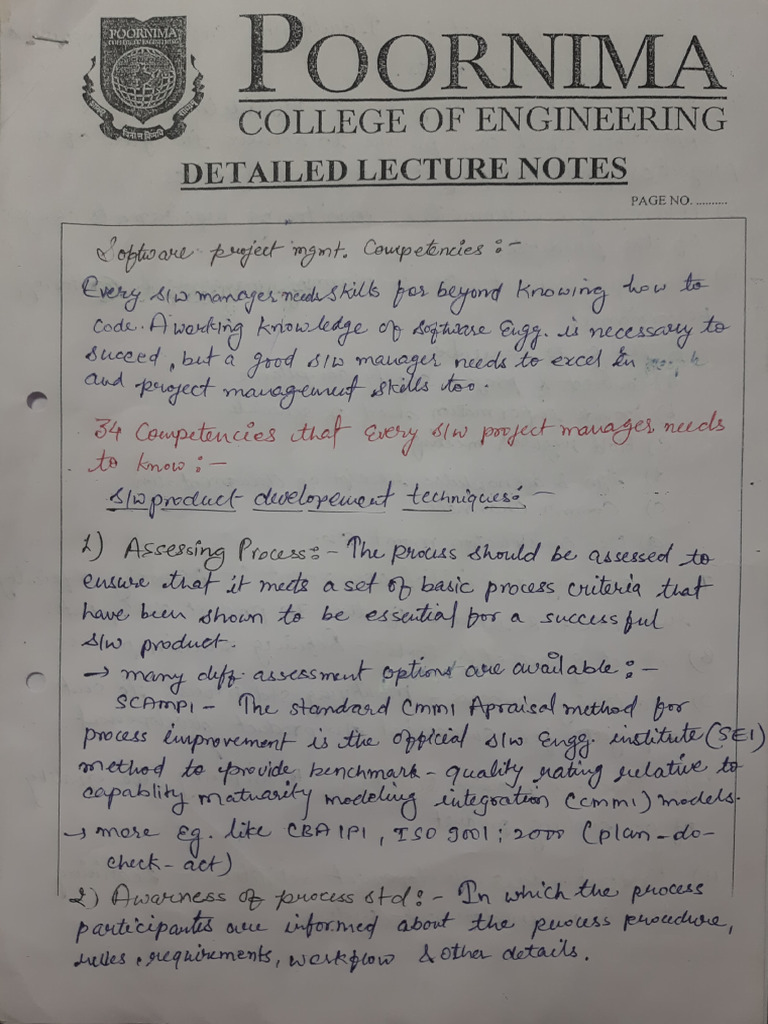 POORNIMA
COLLEGE OF ENGINEERING
POORNIMA
COLLEGE OF ENGINEERING
DETAILED LECTURE NOTES
PAGE NO. ..........
Software project mgmt. Competencies :-
Every s/w manager needs skills far beyond knowing how to
code. A working knowledge of software Engg. is necessary to
succed, but a good s/w manager needs to excel in
and project management skills too.
34 Competencies that every s/w project manager needs
to know :-
S/w product developement techniques :-
1) Assessing Process :- The process should be assessed to
ensure that it meets a set of basic process criteria that
have been shown to be essential for a successful
S/w product.
→ many diff. assessment options are available :-
SCAMPI - The standard CMMI Apraisal method for
process improvement is the official s/w Engg. institute (SEI)
method to provide benchmark - quality rating relative to
capablity maturity modeling integration (CMMI) models.
→ more Eg. like CBA IPI, ISO 9001 : 2000 (plan-do-
check-act)
2) Awarness of process std :- In which the process
participants are informed about the process procedure,
rules, requirements, workflow & other details.